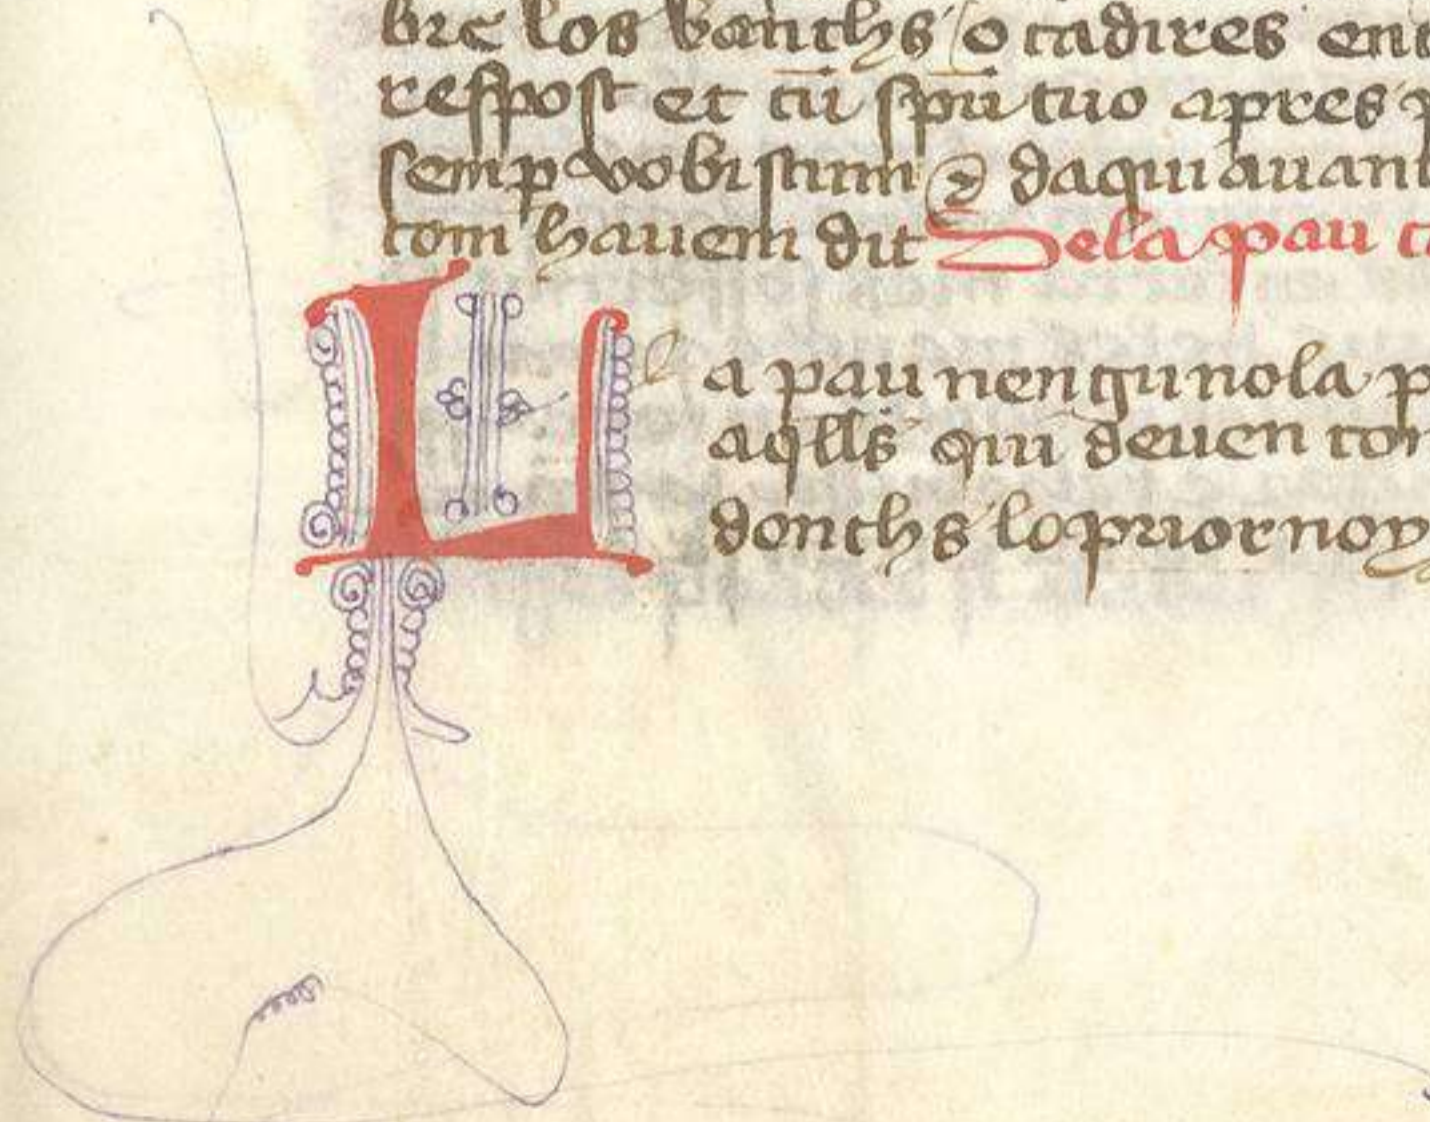 bre los banchs o cadires enc
resspost et cū spū tuo apres p
semp vobiscum ⁊ daqui auant
com hauem dit Dela pau ca
L a pau nengu nola p
aqlls qui deuen com
donchs lo prior noy